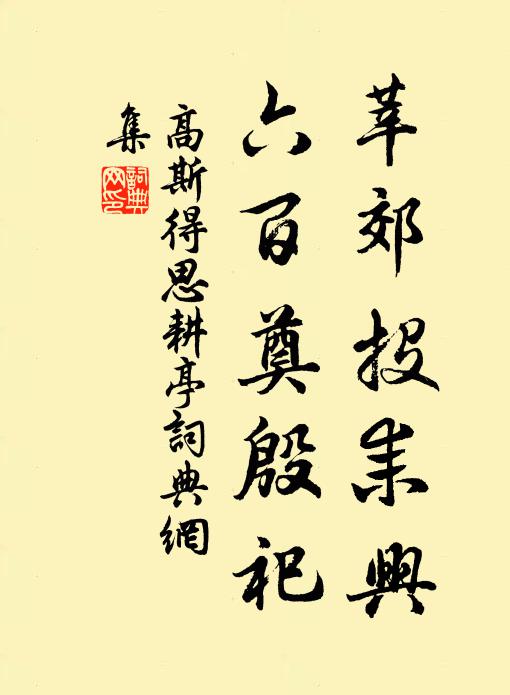 莘郊投耒興
六百奠殷祀
高斯得思耕亭詞典網
集
詞典
网印